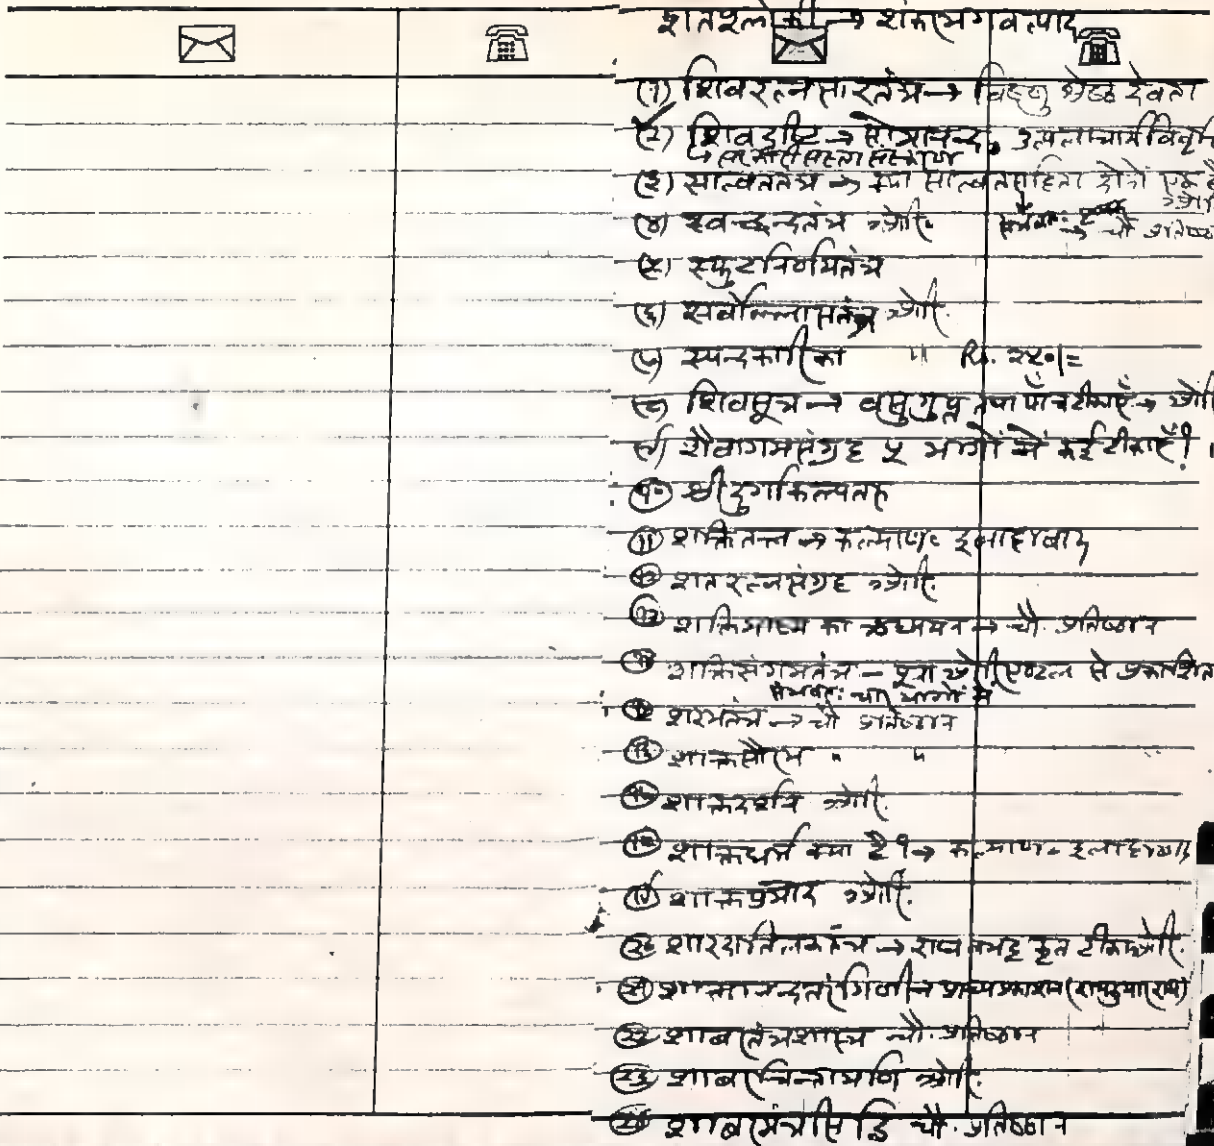 शतश्लोकी → शंकरभगवत्पाद
(१) शिवरत्नसारतंत्र → विष्णु श्रेष्ठ देवता
(२) शिवदृष्टि → सोमानन्द, उत्पलाचार्य
(३) सात्वततंत्र → क्या सात्वतसंहिता दोनों एक
→ चौ प्रतिष्ठा
(४) स्वच्छन्दतंत्र ओरि.
(५) स्फुटनिर्णयतंत्र
(६) सर्वोल्लासतंत्र ओरि.
(७) स्पन्दकारिका " Rs. २५०/=
(८) शिवसूत्र → वसुगुप्त तथा पाँच टीकाएँ → ओरि
(९) शैवागमसंग्रह ५ भागों में कई टीकाएँ?
(१०) श्रीदुर्गाकल्पतरु
(११) शक्तितत्त्व → कल्याण. इलाहाबाद
(१२) शतरत्नसंग्रह ओरि.
(१३) शक्तिभाष्य का अध्ययन → चौ. प्रतिष्ठान
(१४) शक्तिसंगमतंत्र - ओरिएण्टल से प्रकाशित
संभवत: चार भागों में
(१५) शरभतंत्र → चौ प्रतिष्ठान
(१६) " "
(१७) शाक्तदर्शन ओरि.
(१८) शाक्तधर्म क्या है? → कल्याण - इलाहाबाद
(१९) शाक्तप्रमोद ओरि.
(२०) शारदातिलकतंत्र → राघवभट्ट कृत टीका ओरि.
(२१) शाक्तानन्दतरंगिणी → प्राच्यप्रकाशन (रामकुमार राय)
(२२) शाबरतंत्रशास्त्र चौ. प्रतिष्ठान
(२३) शाबरचिन्तामणि ओरि.
(२४) शाबरमंत्रसिद्धि चौ. प्रतिष्ठान